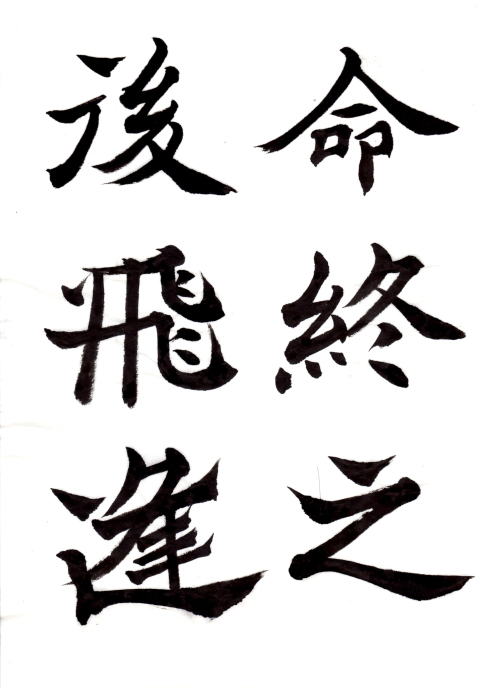 命終之
後飛逢